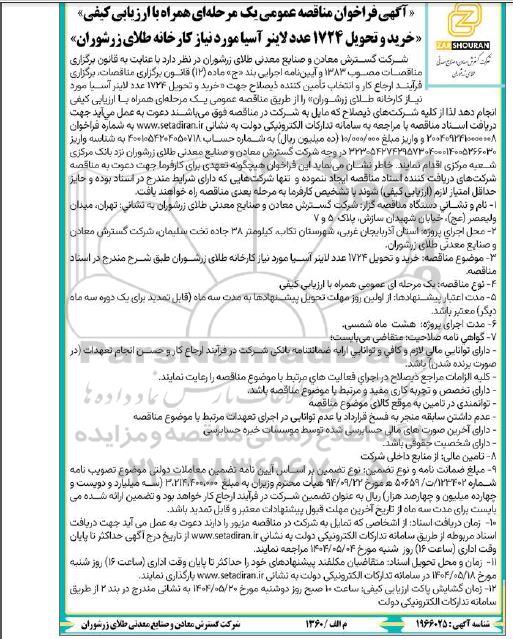 « آگهی فراخوان مناقصه عمومی یک مرحله‌ای همراه با ارزیابی کیفی»
«خرید و تحویل ۱۷۲۴ عدد لاینر آسیا مورد نیاز کارخانه طلای زرشوران»
ZARSHOURAN
شرکت گسترش معادن و صنایع معدنی طلای زرشوران در نظر دارد با عنایت به قانون برگزاری
مناقصات مصوب ۱۳۸۳ و آیین‌نامه اجرایی بند «ج» ماده (۱۲) قانون برگزاری مناقصات، برگزاری
فرآیند ارجاع کار و انتخاب تأمین کننده ذیصلاح جهت «خرید و تحویل ۱۷۲۴ عدد لاینر آسیا مورد
نیاز کارخانه طلای زرشوران» را از طریق مناقصه عمومی یک مرحله‌ای همراه با ارزیابی کیفی
انجام دهد لذا از کلیه شرکت‌های ذیصلاح که مایل به شرکت در مناقصه فوق می‌باشند دعوت به عمل می‌آید جهت
دریافت اسناد مناقصه با مراجعه به سامانه تدارکات الکترونیکی دولت به نشانی www.setadiran.ir به شماره فراخوان
و واریز مبلغ ۱۰/۰۰۰/۰۰۰ (ده میلیون ریال) به شماره حساب به شناسه واریز
در وجه شرکت گسترش معادن و صنایع معدنی طلای زرشوران نزد بانک مرکزی
شعبه مرکزی اقدام نمایند. خاطر نشان می‌نماید این فراخوان هیچگونه تعهدی برای کارفرما جهت دعوت به مناقصه
شرکت‌های دریافت کننده اسناد مناقصه ایجاد ننموده و تنها شرکت‌هایی که دارای شرایط مندرج در اسناد بوده و حایز
حداقل امتیاز لازم (ارزیابی کیفی) شوند با تشخیص کارفرما به مرحله بعدی مناقصه راه خواهند یافت.
۱- نام و نشانی دستگاه مناقصه گزار: شرکت گسترش معادن و صنایع معدنی طلای زرشوران به نشانی: تهران، میدان
ولیعصر (عج)، خیابان شهیدان سازش، پلاک ۵ و ۷
۲- محل اجرای پروژه: استان آذربایجان غربی، شهرستان تکاب، کیلومتر ۳۸ جاده تخت سلیمان، شرکت گسترش معادن و
صنایع معدنی طلای زرشوران.
۳- موضوع مناقصه: خرید و تحویل ۱۷۲۴ عدد لاینر آسیا مورد نیاز کارخانه طلای زرشوران طبق شرح مندرج در اسناد
مناقصه.
۴- نوع مناقصه: یک مرحله ای عمومی همراه با ارزیابی کیفی
۵- مدت اعتبار پیشنهادها: از اولین روز مهلت تحویل پیشنهادها به مدت سه ماه (قابل تمدید برای یک دوره سه ماه
دیگر) معتبر باشد.
۶- مدت اجرای پروژه: هشت ماه شمسی.
۷- گواهی نامه صلاحیت: متقاضی می‌بایست؛
- دارای توانایی مالی لازم و کافی و توانایی ارایه ضمانتنامه بانکی شرکت در فرآیند ارجاع کار و حسن انجام تعهدات (در
صورت برنده شدن) باشد.
- کلیه الزامات مراجع ذیصلاح در اجرای فعالیت های مرتبط با موضوع مناقصه را رعایت نمایند.
- دارای تخصص و تجربه کاری مفید و مرتبط با موضوع مناقصه باشد.
- توانمندی در تامین به موقع کالای موضوع مناقصه
- عدم داشتن سابقه منجر به فسخ قرارداد یا عدم توانایی در اجرای تعهدات مرتبط با موضوع مناقصه
- دارای آخرین صورت های مالی حسابرسی شده توسط موسسات خبره حسابرسی
- دارای شخصیت حقوقی باشد.
۸- تامین مالی: از منابع داخلی شرکت
۹- مبلغ ضمانت نامه و نوع تضمین: نوع تضمین بر اساس آیین نامه تضمین معاملات دولتی موضوع تصویب نامه
شماره ۱۲۳۴۰۲/ت/۵۰۶۵۹ ه مورخ ۹۴/۰۹/۲۲ هیأت محترم وزیران به مبلغ ۳،۲۱۴،۴۰۰،۰۰۰ (سه میلیارد و دویست و
چهارده میلیون و چهارصد هزار) ریال به عنوان تضمین شرکت در فرآیند ارجاع کار خواهد بود و تضمین ارائه شده می
بایست برای مدت سه ماه از تاریخ آخرین مهلت قبول پیشنهادات معتبر و قابل تمدید باشد.
۱۰- زمان دریافت اسناد: از اشخاصی که تمایل به شرکت در مناقصه مزبور را دارند دعوت به عمل می آید جهت دریافت
اسناد مربوطه از طریق سامانه تدارکات الکترونیکی دولت به نشانی www.setadiran.ir از تاریخ درج آگهی حداکثر تا پایان
وقت اداری (ساعت ۱۶) روز شنبه مورخ ۱۴۰۴/۰۵/۰۴ مراجعه نمایند.
۱۱- زمان و محل تحویل اسناد: متقاضیان مکلفند پیشنهادهای خود را حداکثر تا پایان وقت اداری (ساعت ۱۶) روز شنبه
مورخ ۱۴۰۴/۰۵/۱۸ در سامانه تدارکات الکترونیکی دولت به نشانی www.setadiran.ir بارگذاری نمایند.
۱۲- زمان گشایش پاکت ارزیابی کیفی: ساعت ۱۰ صبح روز دوشنبه مورخ ۱۴۰۴/۰۵/۲۰ به نشانی مندرج در بند ۲ از طریق
سامانه تدارکات الکترونیکی دولت
شناسه آگهی: ۱۹۶۶۰۲۵
م الف / ۱۳۶۰
شرکت گسترش معادن و صنایع معدنی طلای زرشوران